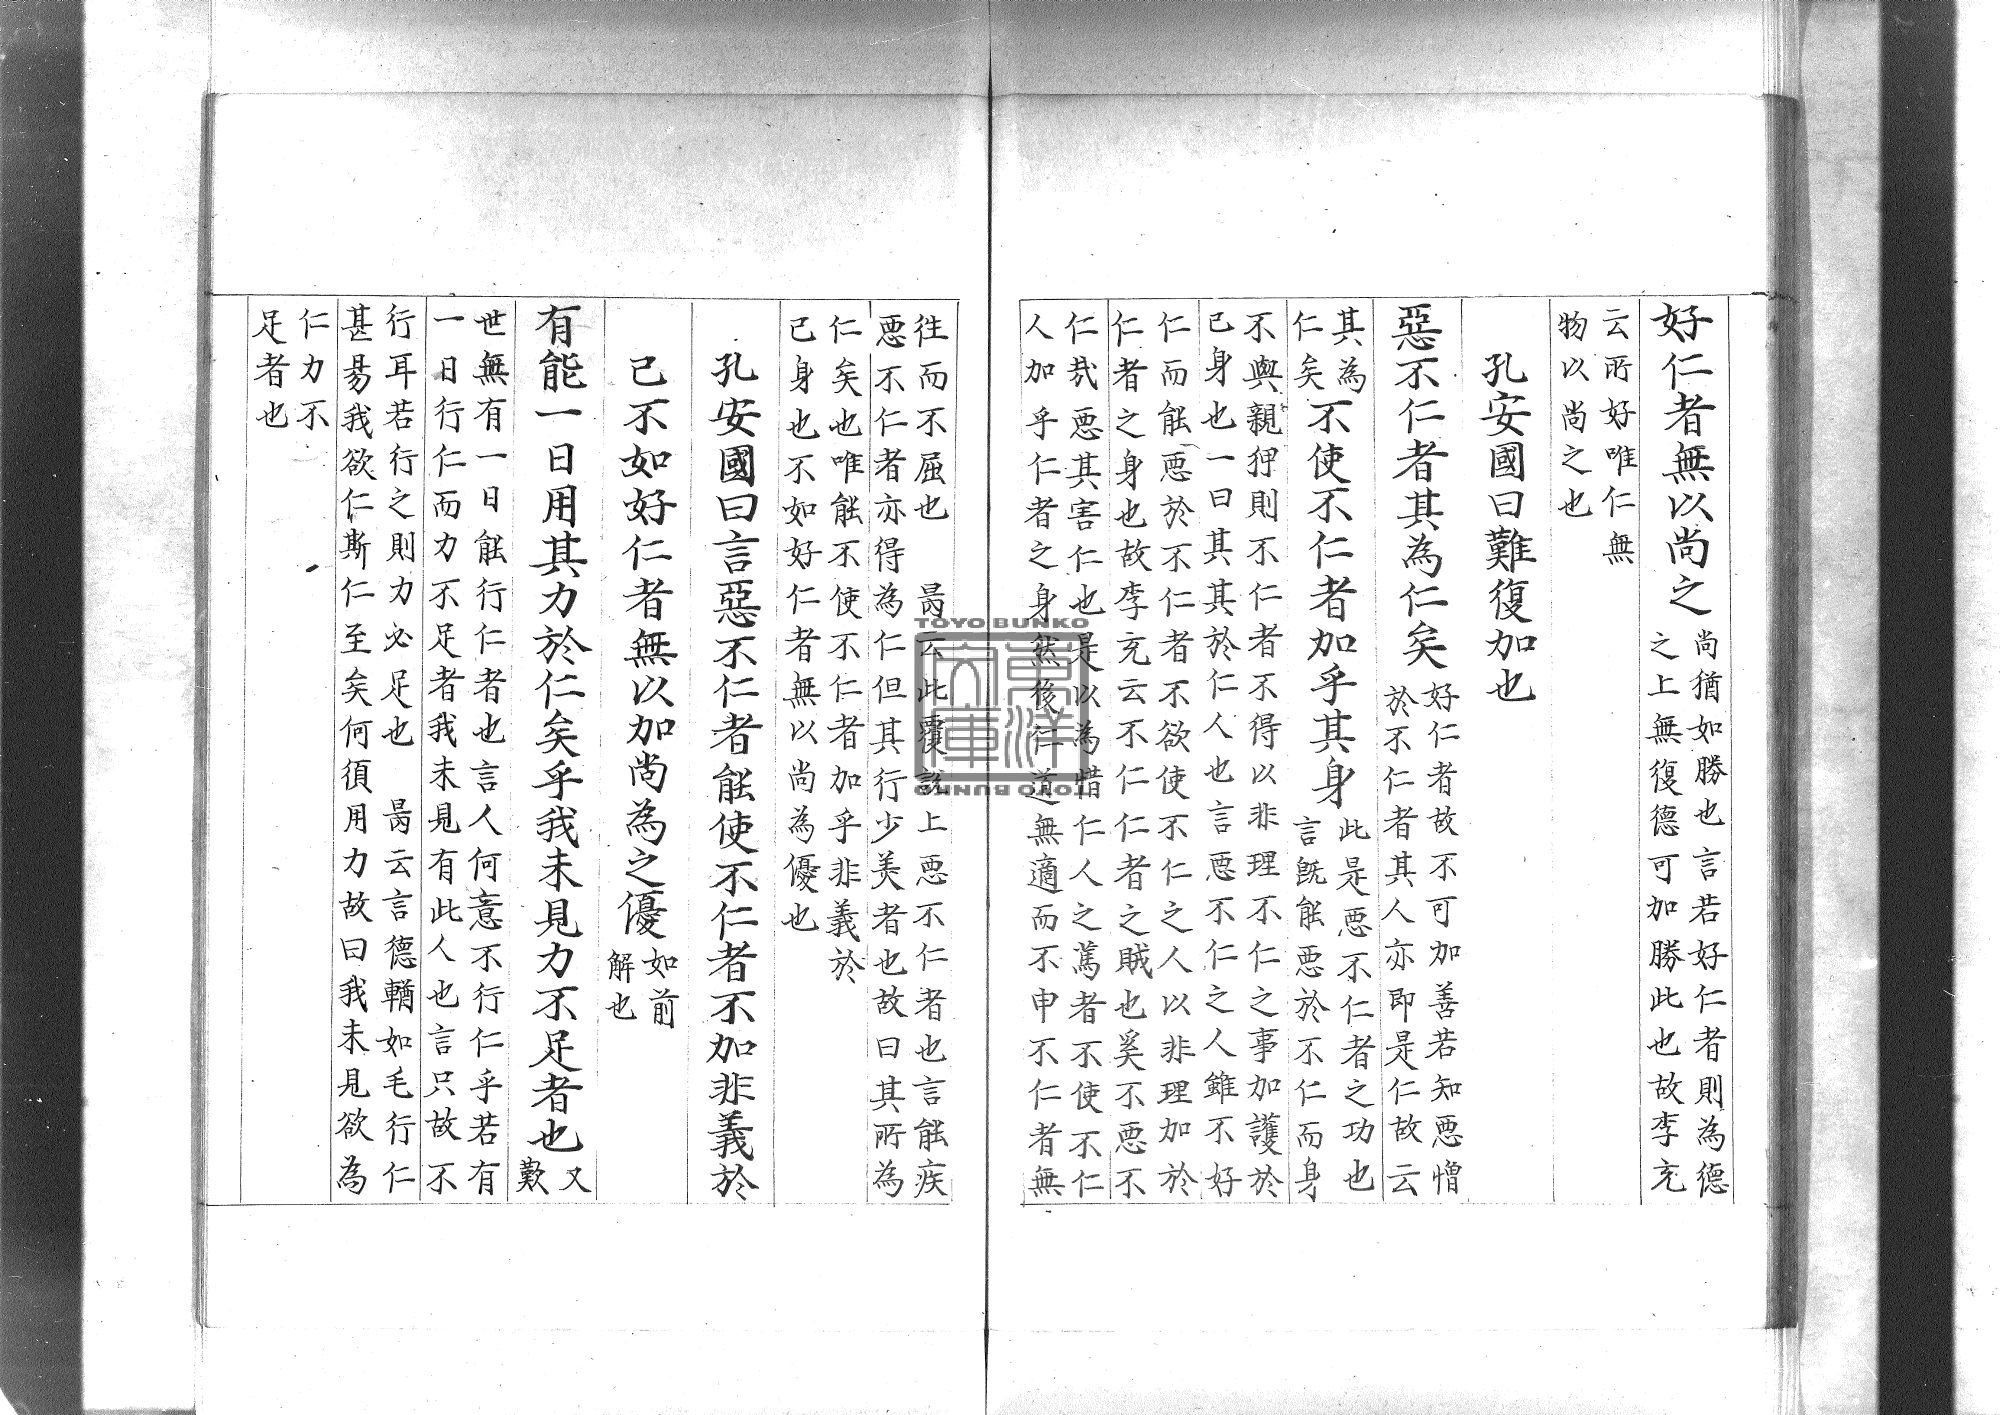 好仁者無以尚之
尚猶如勝也言若好仁者則為德
之上無復德可加勝此也故李充
云所好唯仁無
物以尚之也
孔安國曰難復加也
惡不仁者其為仁矣
好仁者故不可加善若知悪憎
於不仁者其人亦即是仁故云
其為
仁矣
不使不仁者加乎其身
此是悪不仁者之功也
言既能悪於不仁而身
不與親狎則不仁者不得以非理不仁之事加護於
己身也一曰其其於仁人也言悪不仁之人雖不好
仁而能悪於不仁者不欲使不仁之人以非理加於
仁者之身也故李充云不仁仁者之賊也奚不悪不
仁哉悪其害仁也是以為惜仁人之篤者不使不仁
人加乎仁者之身然後仁道無適而不申不仁者無
往而不屈也　昺云此覆說上悪不仁者也言能疾
悪不仁者亦得為仁但其行少美者也故曰其所為
仁矣也唯能不使不仁者加乎非義於
己身也不如好仁者無以尚為優也
孔安國曰言惡不仁者能使不仁者不加非義於
己不如好仁者無以加尚為之優
如前
解也
有能一日用其力於仁矣乎我未見力不足者也
又
歎
世無有一日能行仁者也言人何意不行仁乎若有
一日行仁而力不足者我未見有此人也言只故不
行耳若行之則力必足也　昺云言德輶如毛行仁
甚易我欲仁斯仁至矣何須用力故曰我未見欲為
仁力不
足者也
TOYO BUNKO
東洋文庫
TOYO BUNKO